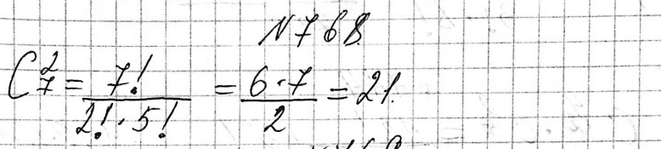 N 768.
C₇² = 7!/(2!·5!) = (6·7)/2 = 21.